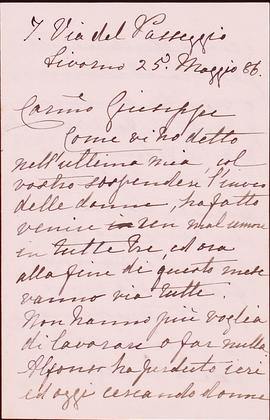 7. Via del Passeggio
Livorno 25. Maggio 86.
Carmo Giuseppe
Come vi ho detto
nell'ultima mia, col
vostro sospendere l'invio
delle donne, ha fatto
venire un mal umore
in tutte tre, ed ora
alla fine di questo mese
vanno via tutte.
Non hanno più voglia
di lavorare o far nulla.
Alfonso ha perduto ieri
ed oggi cercando donne